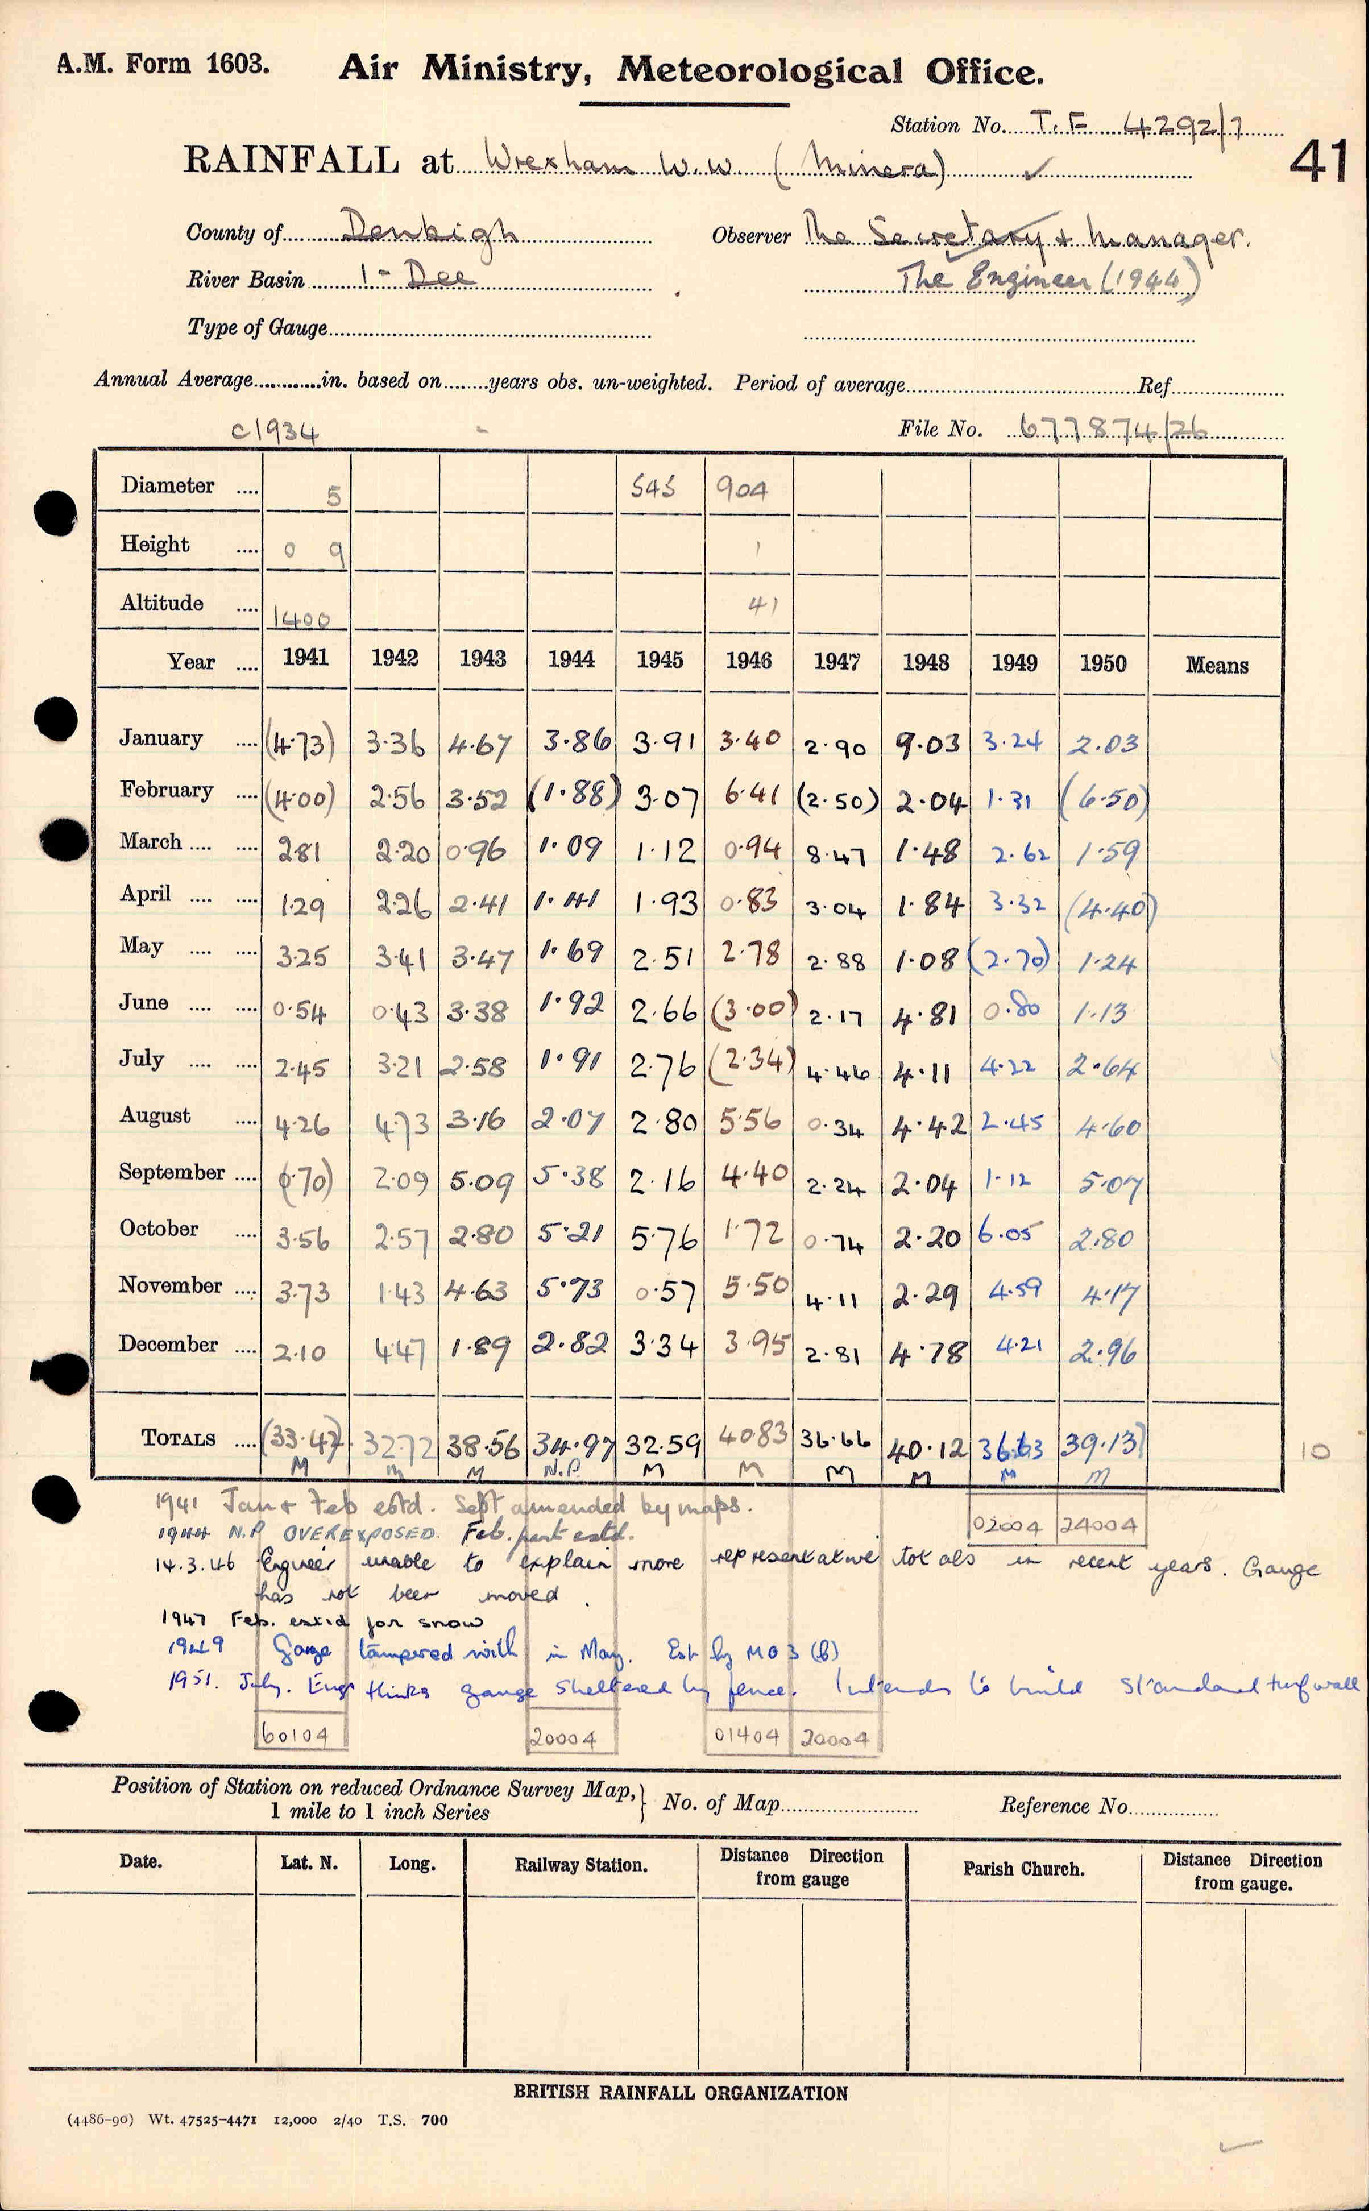 A.M. Form 1603. Air Ministry, Meteorological Office.
Station No. T.F 4292/7
RAINFALL at Wrexham W.W (Minera) ✓ 41
County of Denbigh Observer The Secretary & Manager.
River Basin 1 - Dee The Engineer (1944)
Type of Gauge
Annual Average in. based on years obs. un-weighted. Period of average Ref
c1934 File No. 677874/26
Diameter .... 5 545 904
Height .... 0 9 1
Altitude .... 1400 41
Year .... 1941 1942 1943 1944 1945 1946 1947 1948 1949 1950 Means
January .... (4.73) 3.36 4.67 3.86 3.91 3.40 2.90 9.03 3.24 2.03
February .... (4.00) 2.56 3.52 (1.88) 3.07 6.41 (2.50) 2.04 1.31 (6.50)
March .... .... 2.81 2.20 0.96 1.09 1.12 0.94 8.47 1.48 2.62 1.59
April .... .... 1.29 2.26 2.41 1.41 1.93 0.83 3.04 1.84 3.32 (4.40)
May .... .... 3.25 3.41 3.47 1.69 2.51 2.78 2.88 1.08 (2.70) 1.24
June .... .... 0.54 0.43 3.38 1.92 2.66 (3.00) 2.17 4.81 0.80 1.13
July .... .... 2.45 3.21 2.58 1.91 2.76 (2.34) 4.46 4.11 4.22 2.64
August .... 4.26 4.73 3.16 2.07 2.80 5.56 0.34 4.42 2.45 4.60
September .... (0.70) 2.09 5.09 5.38 2.16 4.40 2.24 2.04 1.12 5.07
October .... 3.56 2.57 2.80 5.21 5.76 1.72 0.74 2.20 6.05 2.80
November .... 3.73 1.43 4.63 5.73 0.57 5.50 4.11 2.29 4.59 4.17
December .... 2.10 4.47 1.89 2.82 3.34 3.95 2.81 4.78 4.21 2.96
TOTALS .... (33.42) 32.72 38.56 34.97 32.59 40.83 36.66 40.12 36.63 39.13) 10
M M M N.P. M M M M M M
1941 Jan & Feb estd. Sept amended by maps.
02004 24004
1944 N.P OVEREXPOSED. Feb. part estd.
14.3.46 Engineer unable to explain more representative totals in recent years. Gauge
has not been moved.
1947 Feb. estd for snow
1949 Gauge tampered with in May. Est by MO3 (b)
1951. July. Engr thinks gauge sheltered by fence. Intends to build standard turf wall
60104 20004 01404 20004
Position of Station on reduced Ordnance Survey Map, } No. of Map Reference No.
1 mile to 1 inch Series
Date. Lat. N. Long. Railway Station. Distance Direction from gauge Parish Church. Distance Direction from gauge.
BRITISH RAINFALL ORGANIZATION
(4486-90) Wt. 47525-4471 12,000 2/40 T.S. 700